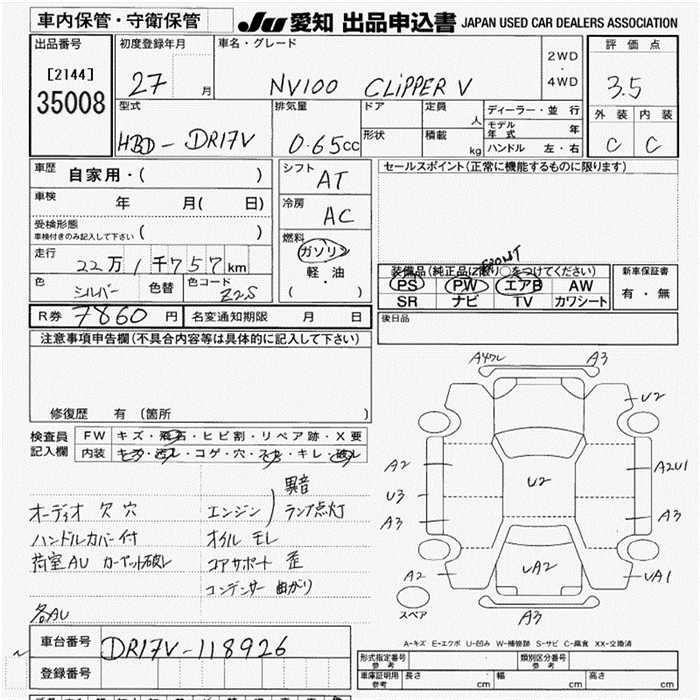 車内保管・守衛保管
JU 愛知 出品申込書 JAPAN USED CAR DEALERS ASSOCIATION
出品番号
[2144]
35008
初度登録年月
27 月
車名・グレード
NV100 CLIPPER V
2WD
・
4WD
評価点
3.5
外装 内装
C C
型式
HBD-DR17V
排気量
0.65cc
ドア
形状
定員
人
積載
kg
ディーラー・並行
モデル年式 年
ハンドル 左・右
車歴
自家用・( )
車検
年 月( 日)
受検形態
車検付きのみ記入して下さい ( )
走行
22万1千757km
色
シルバー
色替
色コード
Z2S
シフト
AT
冷房
AC
燃料
ガソリン
軽・油
( )
セールスポイント(正常に機能するものに限ります)
FRONT
装備品(純正品に限り○をつけてください)
PS PW エアB AW
SR ナビ TV カワシート
新車保証書
有・無
後日品
R券 7860 円
名変通知期限 月 日
注意事項申告欄(不具合内容等は具体的に記入して下さい)
修復歴 有 (箇所 )
検査員
記入欄
FW キズ・飛石・ヒビ割・リペア跡・X要
内装 キズ・汚レ・コゲ・穴・スレ・キレ・破レ
異音
オーディオ 欠 穴
エンジン ランプ点灯
ハンドルカバー付
オイル モレ
荷室AU カーペット破レ
コアサポート 歪
コンデンサー 曲がり
各AU
車台番号
DR17V-118926
登録番号
A4ワレ
A3
U2
A2
A2U1
U3
U2
A3
A3
A2
UA2
UA1
A3
スペア
A-キズ E-エクボ U-凹み W-補修跡 S-サビ C-腐食 XX-交換済
形式指定番号
参考
類別区分番号
参考
車庫証明用
参考
長さ cm
幅 cm
高さ cm